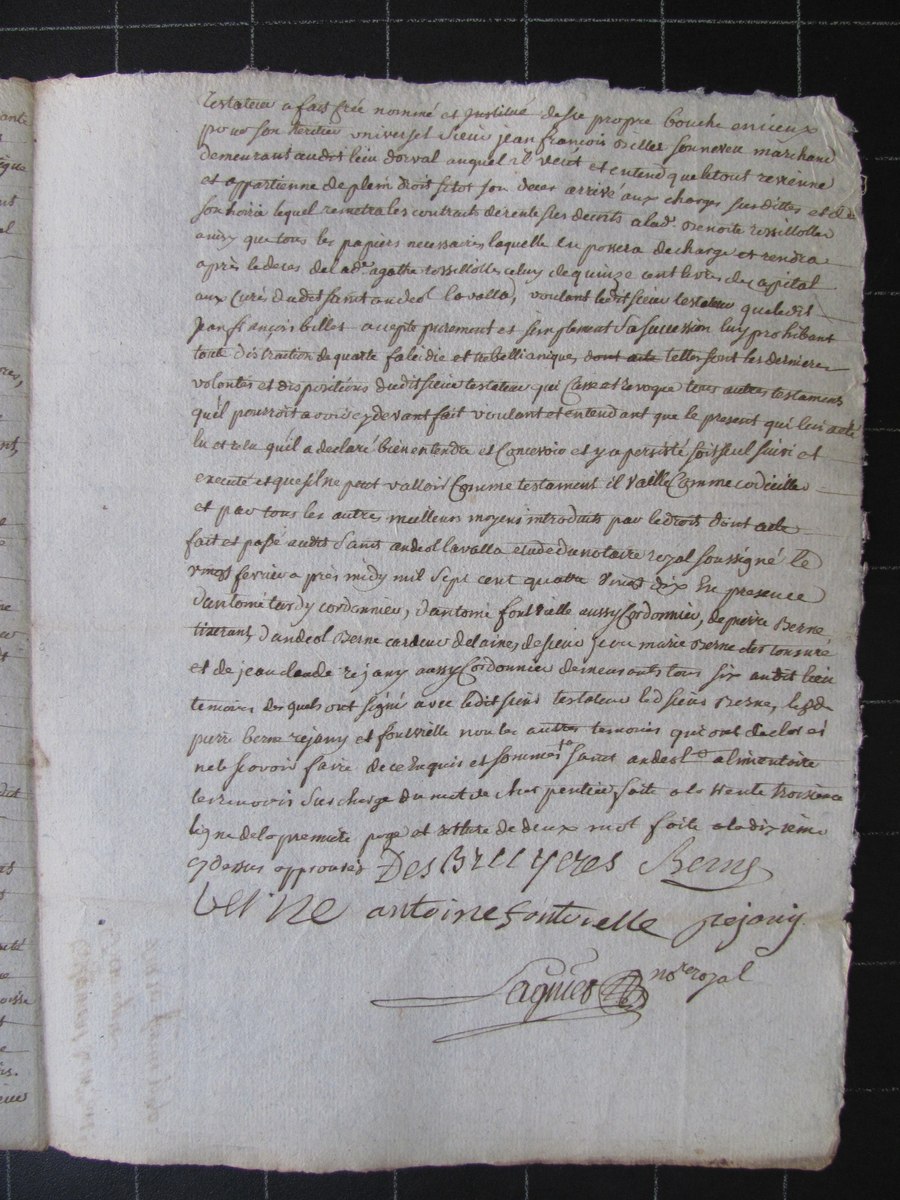 testateur a fait cree nommé et institué de sa propre bouche en ceux
pour son heritier universel sieur jean françois biller son neveu marchand
demeurant audit lieu dorval auquel il veut et entend que le tout revienne
et appartienne de plein droit sitot son deces arrivé aux charges susdittes et de
son hoirie lequel remetra les contrats de rente ses decrits a lad.
ainsy que tous les papiers necessaires laquelle en posera decharge et rendra
après le deces de lad.e agathe celuy de quinze cent livres de capital
aux curés dudit saint andeol lavalla, voulant ledit sieur testateur que ledit
jean françois biller accepte purement et simplement sa succession luy prohibant
toute distraction de quarte falcidie et trebellianique, dont acte telles sont les dernieres
volontes et dispositions dudit sieur testateur qui casse et revoque tous autres testaments
qu'il pourroit avoir cy devant fait voulant et entendant que le present qui lui a eté
lu et relu qu'il a declaré bien entendre et concevoir et y a persisté soit seul suivi et
executé et que s'il ne peut valloir comme testament il vaille comme codicille
et par tous les autres meilleurs moyens introduits par le droit dont acte
fait et passé audit saint andeol lavalla etude du notaire royal soussigné le
fevrier après midy mil sept cent quatre vingt dix en presence
d'antoine tardy cordonnier, d'antoine fontvielle aussy cordonnier, de pierre Berne
tizerant d'andeol Berne cardeur de laines, de sieur jean marie Berne cler tonsuré
et de jean claude rejany aussy cordonnier demeurants tous six audit lieu
temoins desquels ont signé avec ledit sieur testateur led sieur Berne, led
pierre berne rejany et fontvielle non les autres temoins qui ont declaré
ne le sçavoir faire de ce enquis et sommés saint andeol alimentaire
les renvois surcharge du mot de faite a la trente troisieme
ligne de la premiere page et rature de deux mot faite a la dixieme
cy dessus approuvés DesBruyeres Berne
berne antoine fontvielle rejany
nore royal